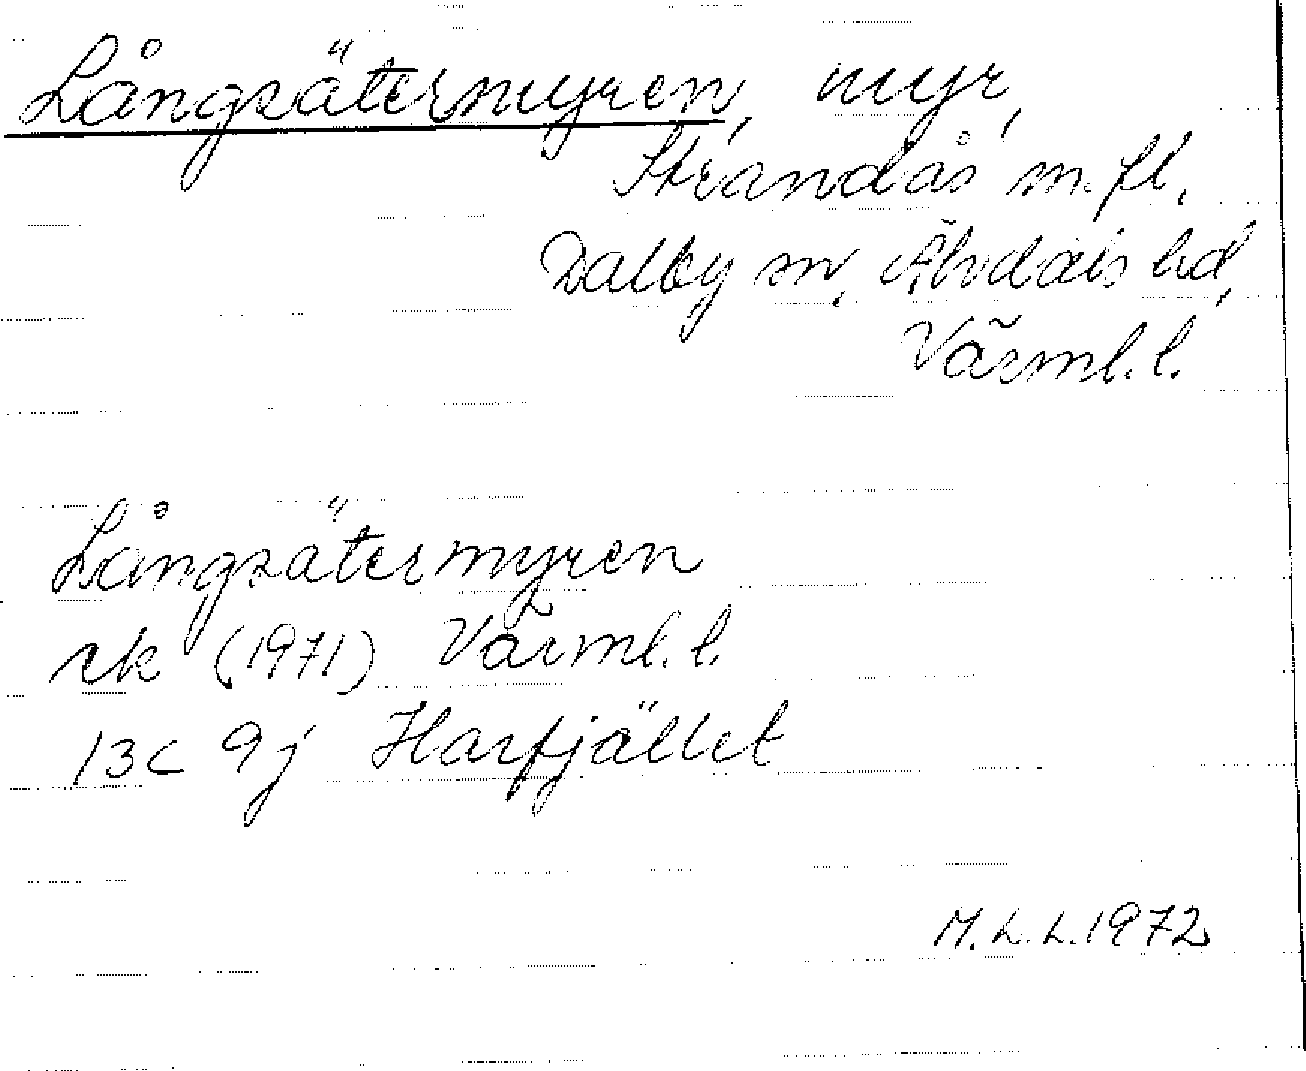 Långsätermyren, myr,
Strandås m.fl.,
Dalby sn, Älvdals hd,
Värml. l.
Långsätermyren
rk (1971) Värml. l.
13C 9j Harfjället
M.L.L. 1972